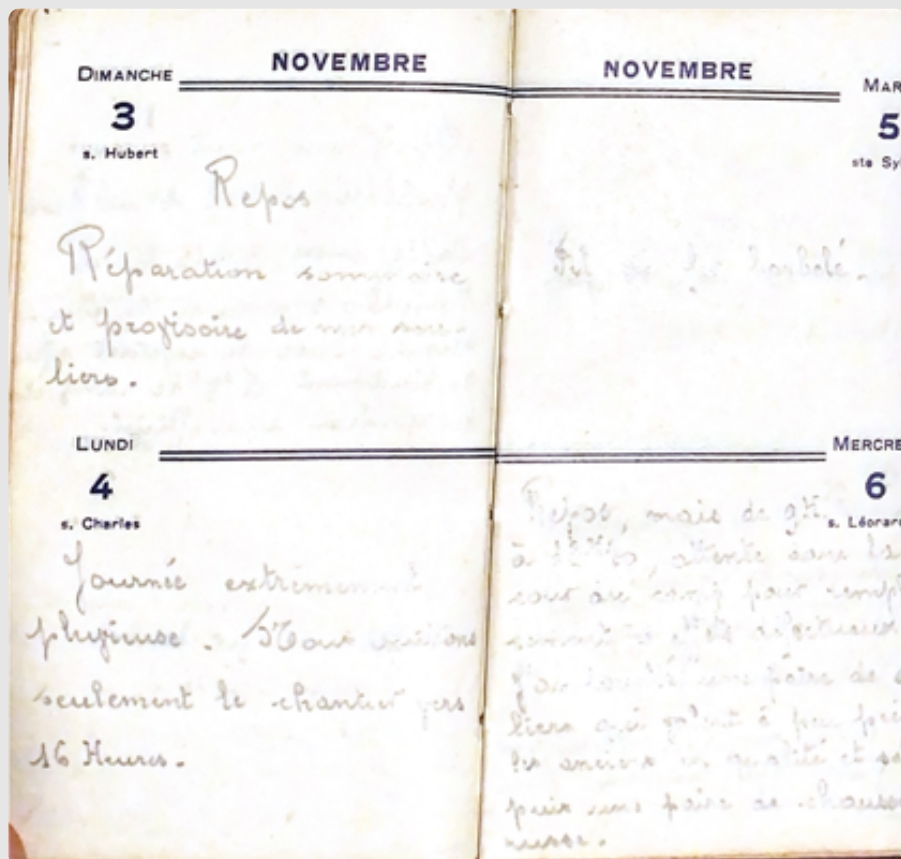 NOVEMBRE
DIMANCHE
3
s. Hubert
Repos
Réparation sommaire
et provisoire de mes sou-
liers.
LUNDI
4
s. Charles
Journée extrêmement
pluvieuse. Nous quittons
seulement le chantier vers
16 Heures.
NOVEMBRE
MAR
5
ste Syl
barbelé.
MERCRE
6
s. Léonard
Repos, mais de 9H
à attente dans la
cour du camp pour rempl
J'ai touché une paire de s
liers qui à peu prè
les anciens en qualité et
puis une paire de chauss
russe.